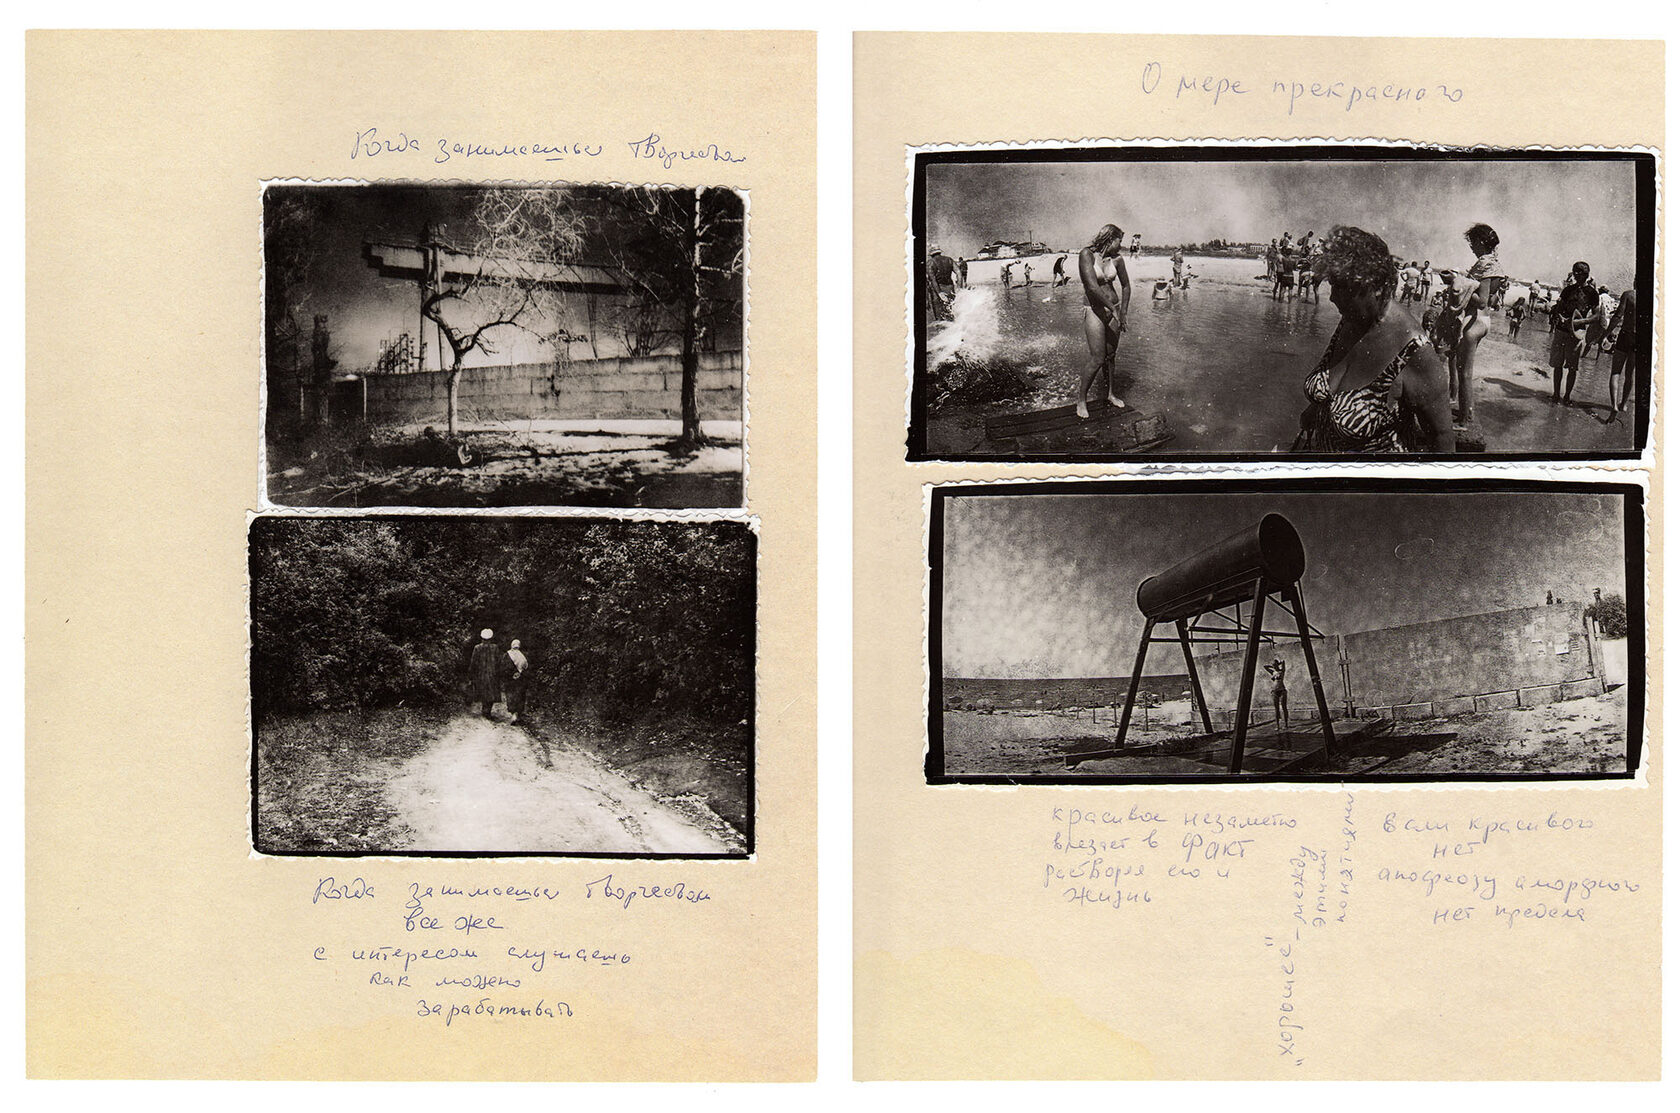 Когда занимаешься Творчеством
Когда занимаешься Творчеством
все же
с интересом слушаешь
как можно
зарабатывать
О мере прекрасного
красивое незаметно
влезает в ФАКТ
растворяя его и
жизнь
"хорошее" – между
этими
понятиями
если красивого
нет
апофеозу аморфного
нет предела